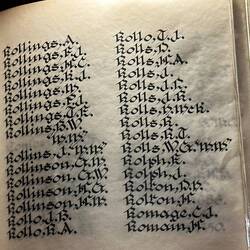 Rollings, A.
Rollings, E.J.
Rollings, H.C.
Rollings, R.J.
Rollings, W.
Rollings,
Rollings,
Rollins,
Rollins, J.
Rollinson, G.W.
Rollinson, G.W.
Rollinson, H.G.
Rollinson, H.W.
Rollo, J.B.
Rollo, R.A.
Rollo, T.J.
Rolls, D.
Rolls, H.A.
Rolls, J.
Rolls, J.H.
Rolls, J.R.
Rolls,
Rolls, R.
Rolls, R.T.
Rolls, W.G.
Rolph, E.
Rolph, J.
Rolton, D.P.
Rolton, H.
Romage, C.J.
Roman,